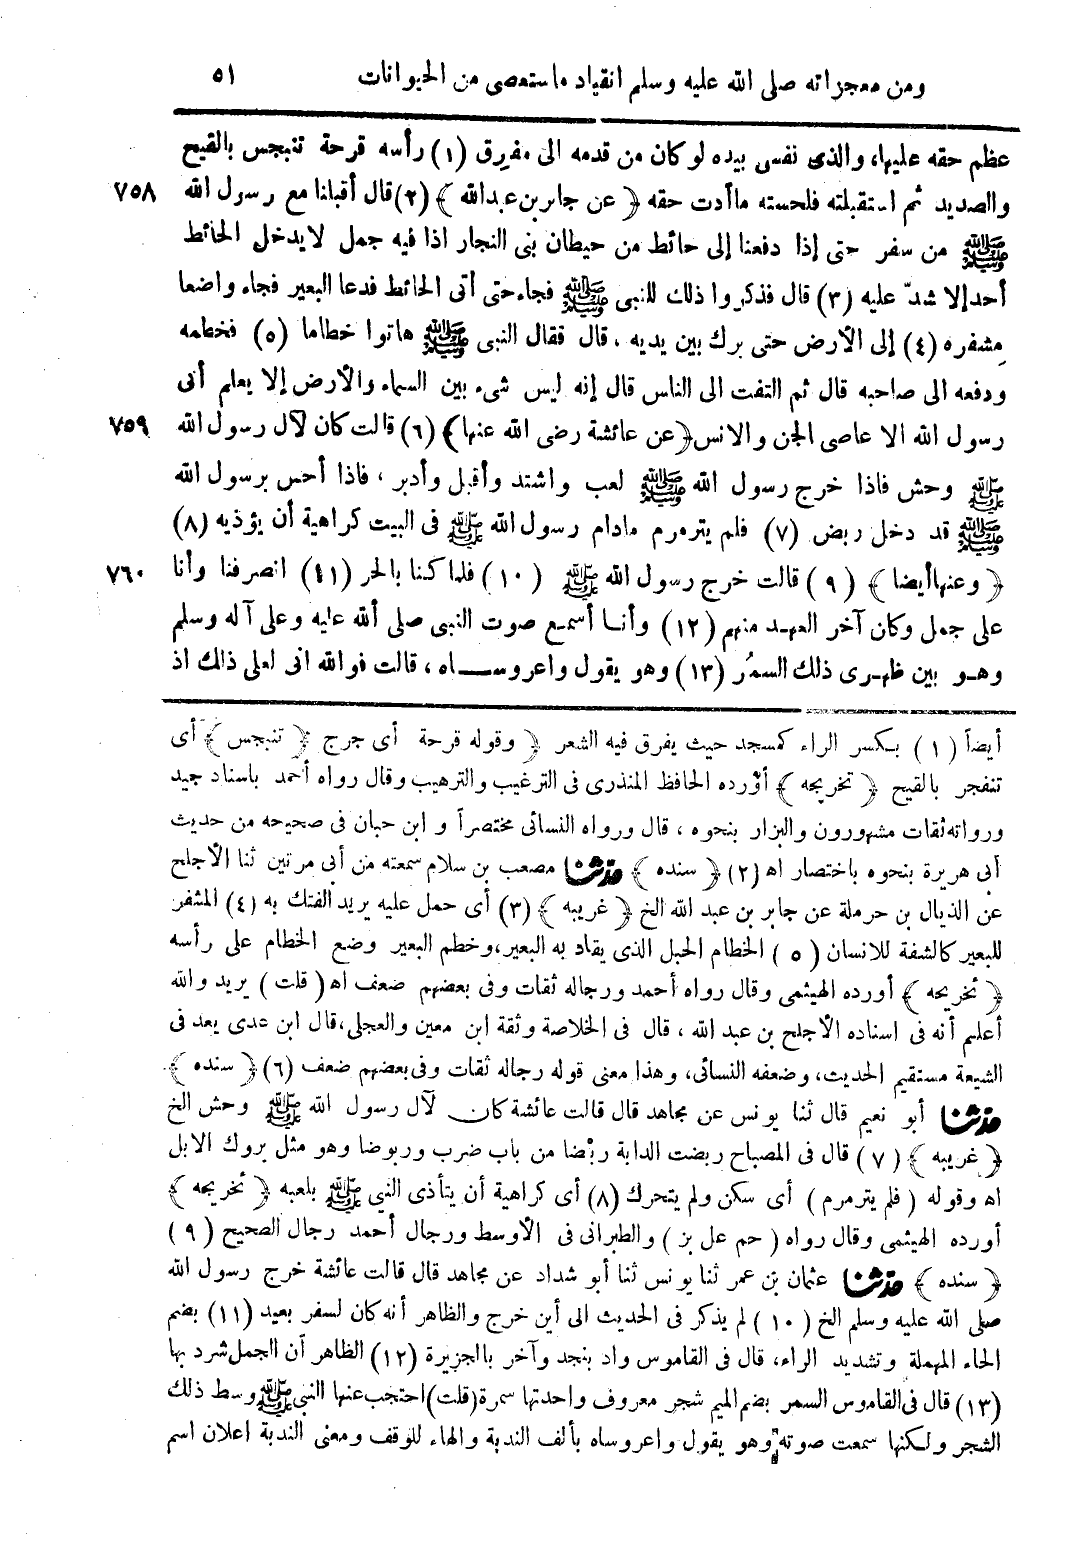 ومن معجزاته صلى الله عليه وسلم انقياد ما استعصى من الحيوانات ٥١
عظم حقه عليها، والذى نفسى بيده لو كان من قدمه الى مفرِق (١) رأسه قرحة تنبجس بالقيح
والصديد ثم استقبلته فلحسته ما أدت حقه ﴿ عن جابر بن عبد الله ﴾ (٢) قال أقبلنا مع رسول الله ٧٥٨
ﷺ من سفر حتى إذا دفعنا إلى حائط من حيطان بنى النجار اذا فيه جمل لا يدخل الحائط
أحد إلا شدّ عليه (٣) قال فذكروا ذلك للنبى ﷺ فجاء حتى أتى الحائط فدعا البعير فجاء واضعا
مِشفره (٤) إلى الأرض حتى برك بين يديه ، قال فقال النبى ﷺ هاتوا خطاما (٥) فخطمه
ودفعه الى صاحبه قال ثم التفت الى الناس قال إنه ليس شىء بين السماء والأرض إلا يعلم أنى
رسول الله الا عاصى الجن والانس ﴿ عن عائشة رضى الله عنها ﴾ (٦) قالت كان لآل رسول الله ٧٥٩
ﷺ وحش فاذا خرج رسول الله ﷺ لعب واشتد وأقبل وأدبر ، فاذا أحس برسول الله
ﷺ قد دخل ربض (٧) فلم يترمرم مادام رسول الله ﷺ فى البيت كراهية أن يؤذيه (٨)
﴿ وعنها أيضا ﴾ (٩) قالت خرج رسول الله ﷺ (١٠) فلما كنا بالحر (١١) انصرفنا وأنا ٧٦٠
على جمل وكان آخر العهد منهم (١٢) وأنا أسمع صوت النبى صلى ألله عليه وعلى آله وسلم
وهو بين ظهرى ذلك السمُر (١٣) وهو يقول واعروساه ، قالت فوالله انى لعلى ذلك اذ
أيضاً (١) بكسر الراء كمسجد حيث يفرق فيه الشعر ﴿ وقوله قرحة أى جرح ﴿ تنبجس ﴾ أى
تنفجر بالقيح ﴿ تخريجه ﴾ أورده الحافظ المنذرى فى الترغيب والترهيب وقال رواه أحمد باسناد جيد
ورواته ثقات مشهورون والبزار بنحوه ، قال ورواه النسائى مختصراً و ابن حبان فى صحيحه من حديث
أبى هريرة بنحوه باختصار اه (٢) ﴿ سنده ﴾ حدثنا مصعب بن سلام سمعته من أبى مرتين ثنا الأجلح
عن الذيال بن حرملة عن جابر بن عبد الله الخ ﴿ غريبه ﴾ (٣) أى حمل عليه يريد الفتك به (٤) المشفر
للبعير كالشفة للانسان (٥) الخطام الحبل الذى يقاد به البعير، وخطم البعير وضع الخطام على رأسه
﴿ تخريجه ﴾ أورده الهيثمى وقال رواه أحمد ورجاله ثقات وفى بعضهم ضعف اه (قلت) يريد والله
أعلم أنه فى اسناده الأجلح بن عبد الله ، قال فى الخلاصة وثقة ابن معين والعجلى، قال ابن عدى يعد فى
الشيعة مستقيم الحديث، وضعفه النسائى، وهذا معنى قوله رجاله ثقات وفى بعضهم ضعف (٦) ﴿ سنده ﴾
حدثنا أبو نعيم قال ثنا يونس عن مجاهد قال قالت عائشة كان لآل رسول الله ﷺ وحش الخ
﴿ غريبه ﴾ (٧) قال فى المصباح ربضت الدابة ربْضا من باب ضرب وربوضا وهو مثل بروك الابل
اه وقوله (فلم يترمرم) أى سكن ولم يتحرك (٨) أى كراهية أن يتأذى النبي ﷺ بلعبه ﴿ تخريجه ﴾
أورده الهيثمى وقال رواه (حم عل بز) والطبرانى فى الأوسط ورجال أحمد رجال الصحيح (٩)
﴿ سنده ﴾ حدثنا عثمان بن عمر ثنا يونس ثنا أبو شداد عن مجاهد قال قالت عائشة خرج رسول الله
صلى الله عليه وسلم الخ (١٠) لم يذكر فى الحديث الى أين خرج والظاهر أنه كان لسفر بعيد (١١) بضم
الحاء المهملة وتشديد الراء، قال فى القاموس واد بنجد وآخر بالجزيرة (١٢) الظاهر أن الجمل شرد بها
(١٣) قال فى القاموس السمر بضم الميم شجر معروف واحدتها سمرة (قلت) احتجب عنها النبى ﷺ وسط ذلك
الشجر ولكنها سمعت صوته وهو يقول واعروساه بألف الندبة والهاء للوقف ومعنى الندبة اعلان اسم